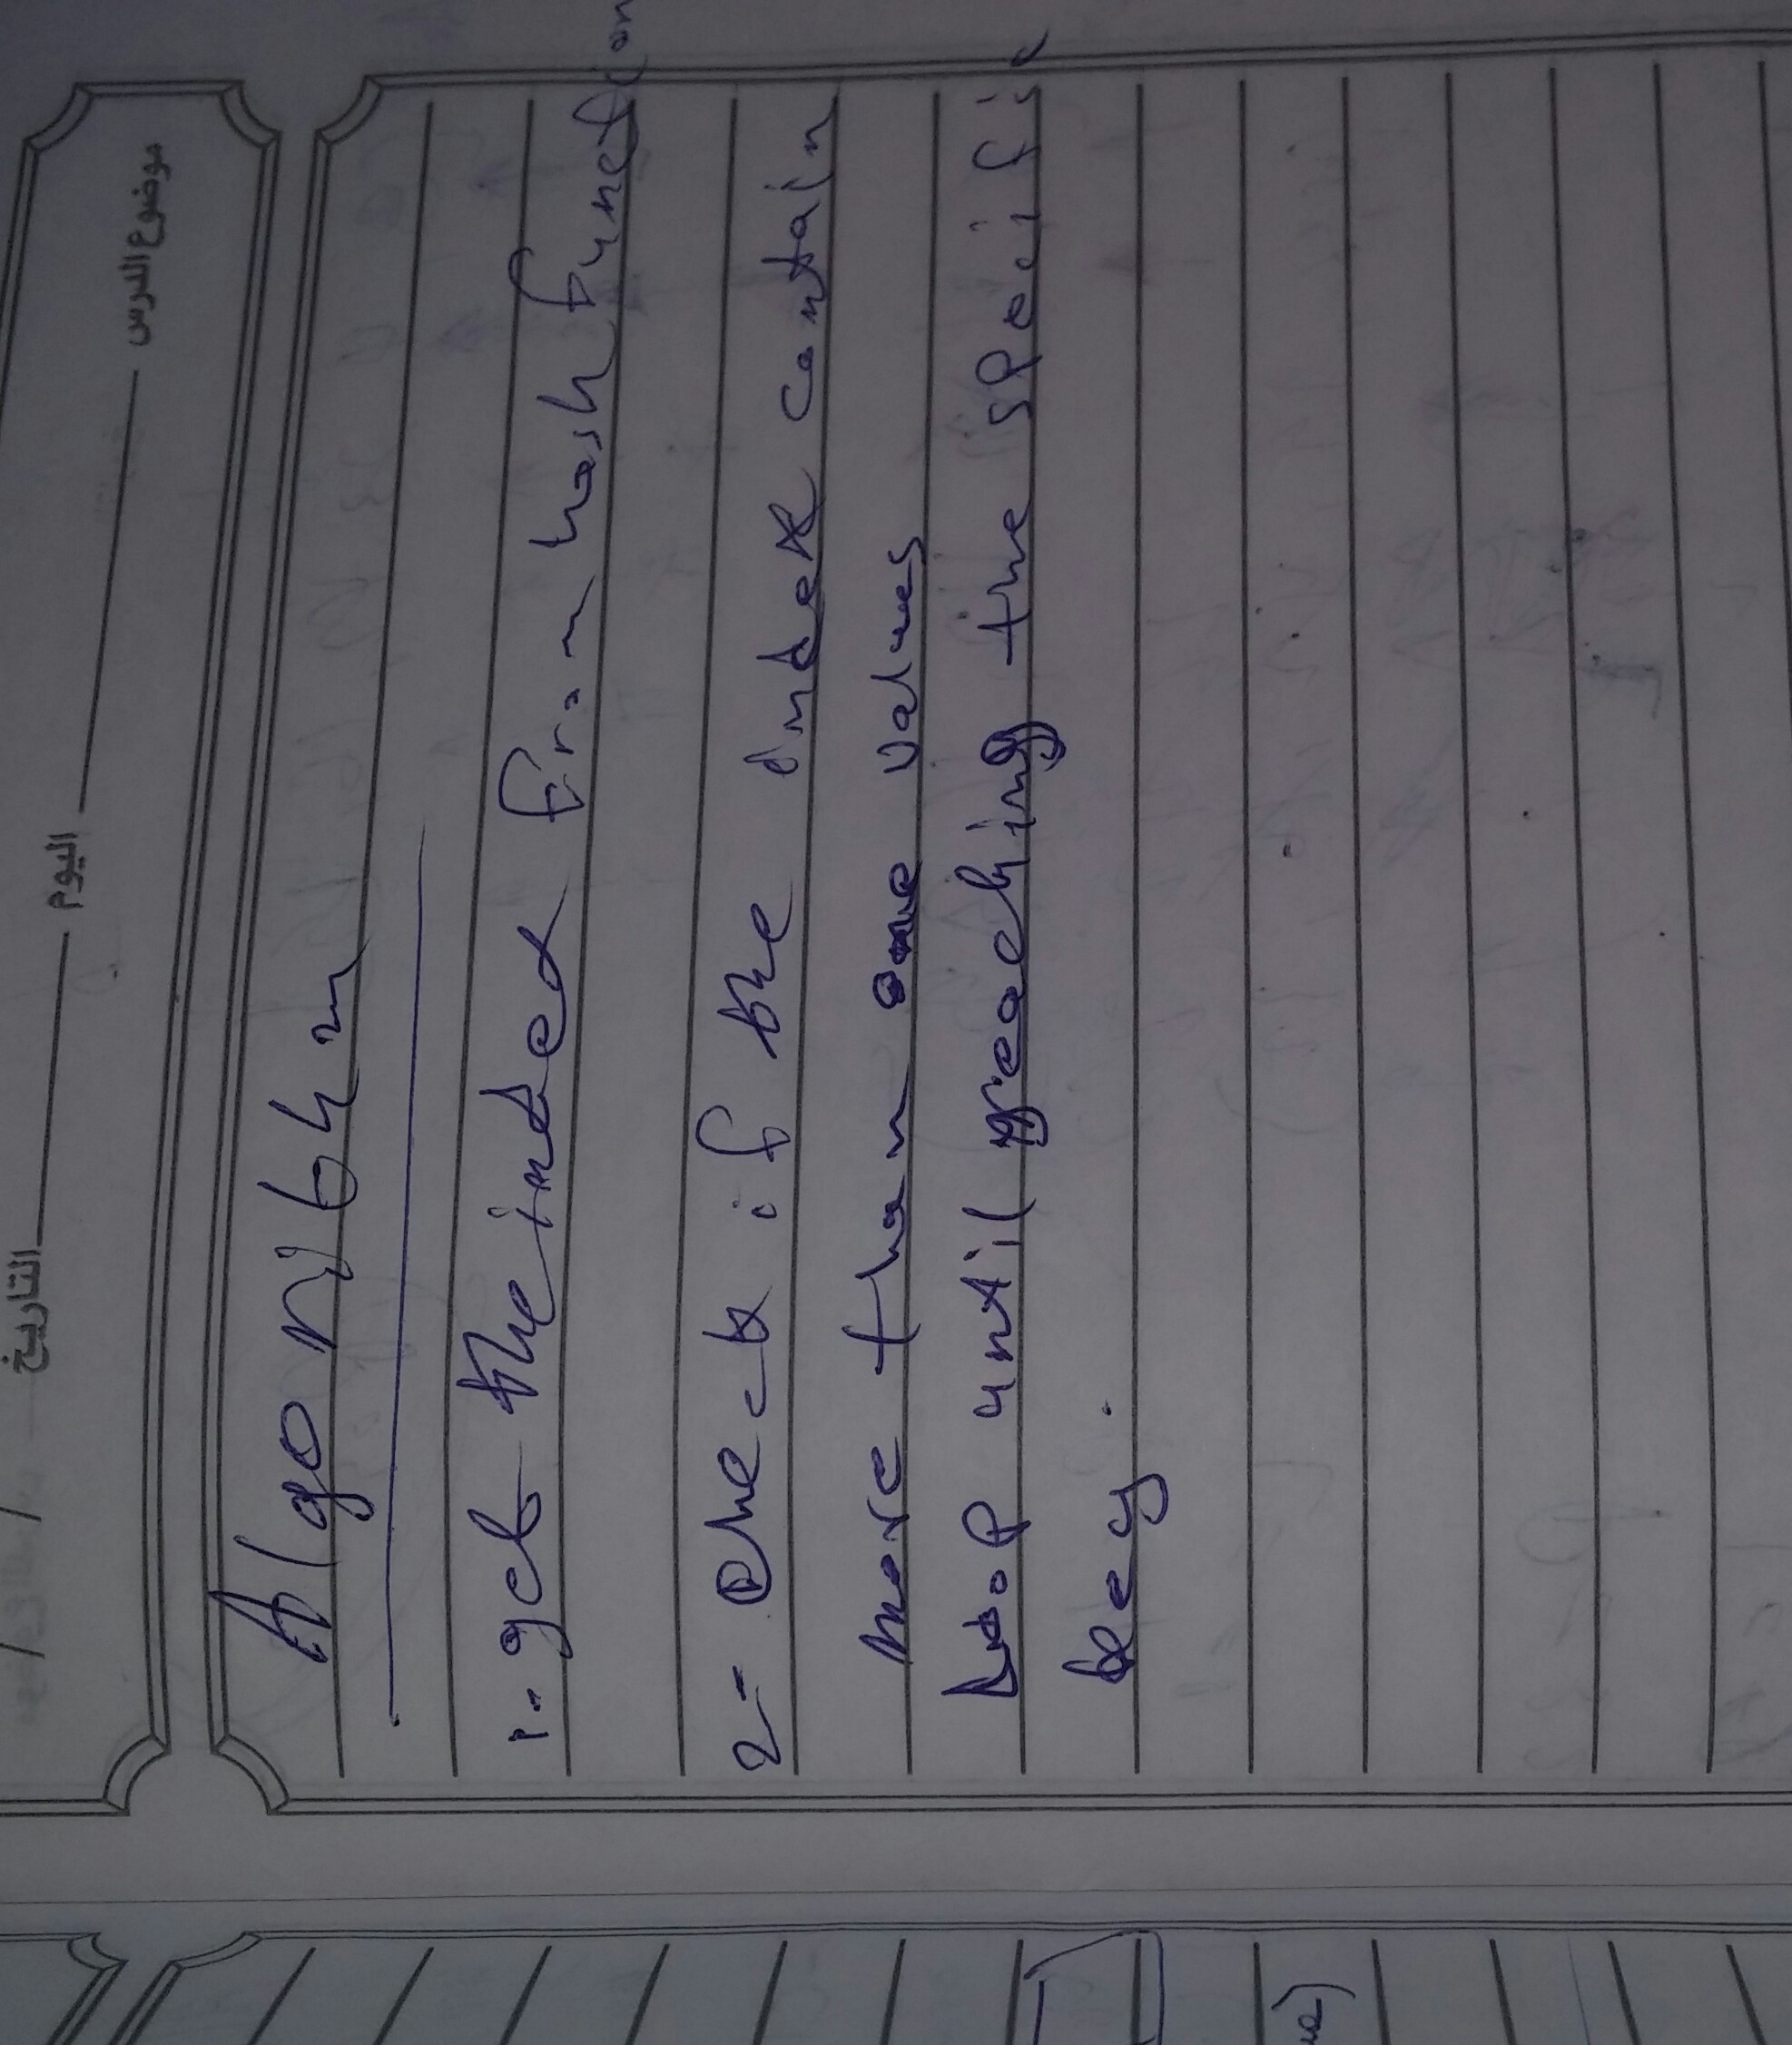 موضوع الدرس
اليوم
التاريخ
Algorithm
1- get the inded from hash function
2- check if the index contain
more than one values
Loop until reaching the specific
key.